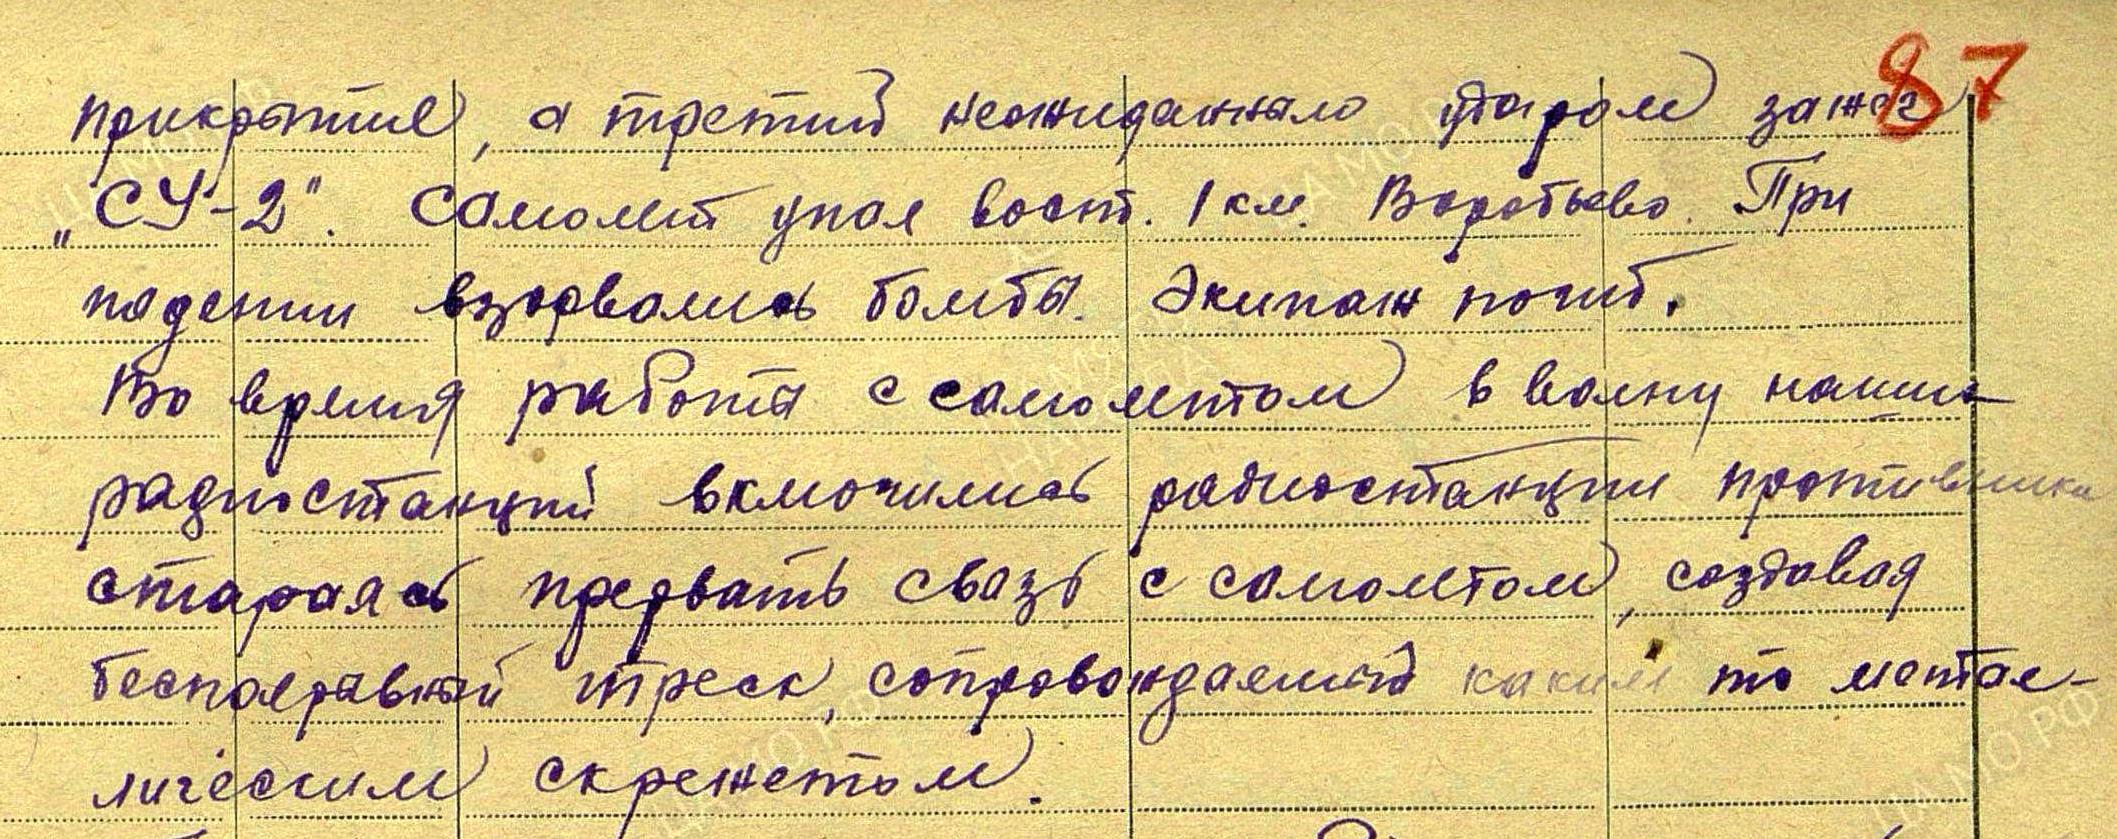 87
прикрытие, а третий неожиданным ударом зажег
„СУ-2". Самолет упал вост. 1 км. Воробьево. При
падении взорвались бомбы. Экипаж погиб.
Во время работы с самолетом в волну наших
радиостанций включились радиостанции противника
стараясь прервать связь с самолетом, создавая
беспрерывный треск, сопровождаемый каким то метал-
лическим скрежетом.